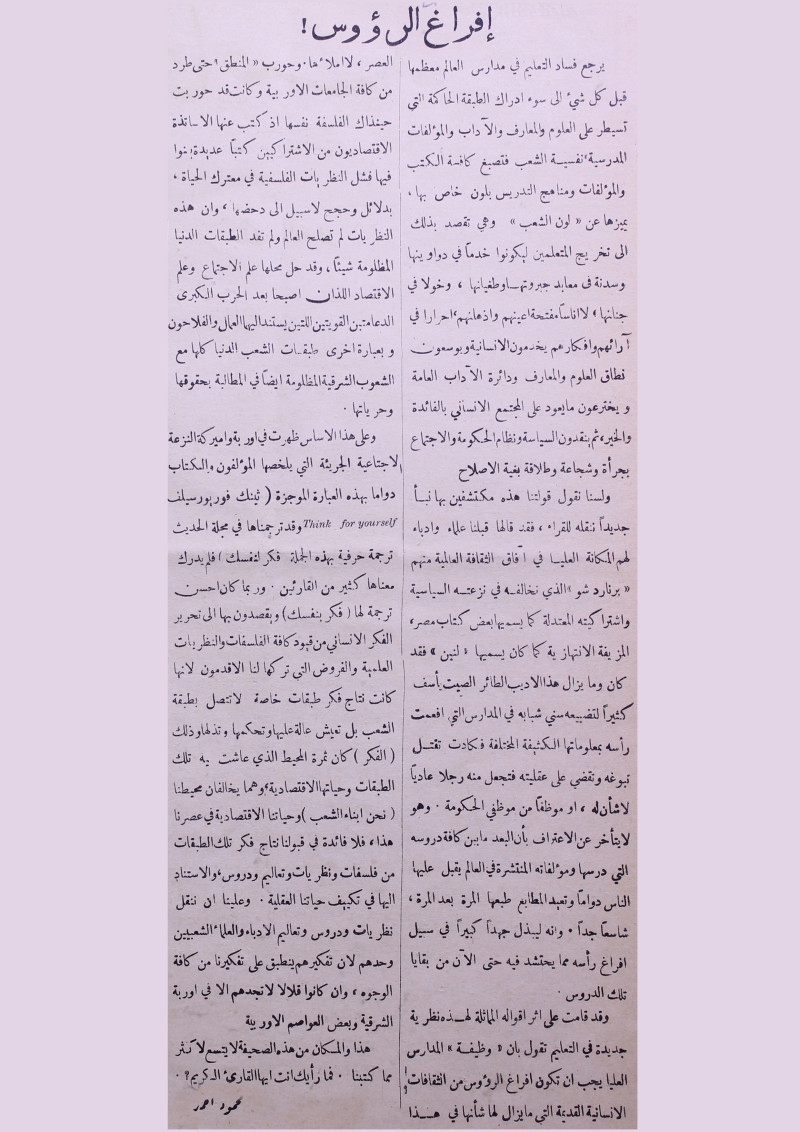 إفراغ الرؤوس!
يرجع فساد التعليم في مدارس العالم معظمها
قبل كل شيء الى سوء ادراك الطبقة الحاكمة التي
تسيطر على العلوم والمعارف والآداب والمؤلفات
المدرسية نفسية الشعب فتصبغ كافة الكتب
والمؤلفات ومناهج التدريس بلون خاص بها ،
يميزها عن « لون الشعب » وهي تقصد بذلك
الى تخريج المتعلمين ليكونوا خدماً في دواوينها
وسدنة في معابد جبروتها وطغيانها ، وخولا في
جناتها ، لا اناساً مفتحة اعينهم واذهانهم ، احرارا في
آرائهم وافكارهم يخدمون الانسانية ويوسعون
نطاق العلوم والمعارف ودائرة الآداب العامة
ويخترعون ما يعود على المجتمع الانساني بالفائدة
والخير ، ثم ينقدون السياسة ونظام الحكومة والاجتماع
بجرأة وشجاعة وطلاقة بغية الاصلاح
ولسنا نقول قولتنا هذه مكتشفين بها نبأ
جديداً ننقله للقراء ، فقد قالها قبلنا علماء وادباء
لهم المكانة العليا في آفاق الثقافة العالمية منهم
« برنارد شو » الذي نخالفه في نزعته السياسية
واشتراكيته المعتدلة كما يسميها بعض كتاب مصر ،
المزيفة الانتهازية كما كان يسميها « لنين » فقد
كان وما يزال هذا الاديب الطائر الصيت يأسف
كثيراً لتضييعه سني شبابه في المدارس التي افعمت
رأسه بمعلوماتها الكثيفة المختلفة فكادت تقتل
نبوغه وتقضي على عقليته فتجعل منه رجلا عادياً
لا شأن له ، او موظفاً من موظفي الحكومة . وهو
لا يتأخر عن الاعتراف بأن البعد ما بين كافة دروسه
التي درسها ومؤلفاته المنتشرة في العالم يقبل عليها
الناس دواماً وتعيد المطابع طبعها المرة بعد المرة ،
شاسعاً جداً . وانه ليبذل جهداً كبيراً في سبيل
افراغ رأسه مما يحتشد فيه حتى الآن من بقايا
تلك الدروس .
وقد قامت على اثر اقواله الماثلة لهذه نظرية
جديدة في التعليم تقول بان « وظيفة » المدارس
العليا يجب ان تكون افراغ الرؤوس من الثقافات
الانسانية القديمة التي ما يزال لها شأنها في هذا
العصر ، لا املاءها . وحورب « المنطق » حتى طرد
من كافة الجامعات الاوربية وكانت قد حوربت
حينذاك الفلسفة نفسها اذ كتب عنها الاساتذة
الاقتصاديون من الاشتراكيين كتباً عديدة بينوا
فيها فشل النظريات الفلسفية في معترك الحياة ،
بدلائل وحجج لا سبيل الى دحضها ، وان هذه
النظريات لم تصلح العالم ولم تفد الطبقات الدنيا
المظلومة شيئاً ، وقد حل محلها علم الاجتماع وعلم
الاقتصاد اللذان اصبحا بعد الحرب الكبرى
الدعامتين القويتين اللتين يستند اليها العمال والفلاحون
وبعبارة اخرى طبقات الشعب الدنيا كلها مع
الشعوب الشرقية المظلومة ايضاً في المطالبة بحقوقها
وحرياتها .
وعلى هذا الاساس ظهرت في اوربة واميركة النزعة
الاجتماعية الجريئة التي يلخصها المؤلفون والكتاب
دواما بهذه العبارة الموجزة ( ثينك فور يورسيلف
Think for yourself وقد ترجمناها في مجلة الحديث
ترجمة حرفية بهذه الجملة فكر لنفسك ) فلم يدرك
معناها كثير من القارئين . وربما كان احسن
ترجمة لها ( فكر بنفسك ) ويقصدون بها الى تحرير
الفكر الانساني من قيود كافة الفلسفات والنظريات
العلمية والفروض التي تركها لنا الاقدمون لانها
كانت نتاج فكر طبقات خاصة لا تتصل بطبقة
الشعب بل تعيش عالة عليها وتحكمها وتذلها وذلك
( الفكر ) كان ثمرة المحيط الذي عاشت به تلك
الطبقات وحياتها الاقتصادية ، وهما يخالفان محيطنا
( نحن ابناء الشعب ) وحياتنا الاقتصادية في عصرنا
هذا ، فلا فائدة في قبولنا نتاج فكر تلك الطبقات
من فلسفات ونظريات وتعاليم ودروس ، والاستناد
اليها في تكييف حياتنا العقلية . وعلينا ان ننقل
نظريات ودروس وتعاليم الادباء والعلماء الشعبيين
وحدهم لان تفكيرهم ينطبق على تفكيرنا من كافة
الوجوه ، وان كانوا قلالا لا تجدهم الا في اوربة
الشرقية وبعض العواصم الاوربية
هذا والمكان من هذه الصحيفة لا يتسع لاكثر
مما كتبنا . فما رأيك انت ايها القارئ الكريم ؟ .
محمود احمد